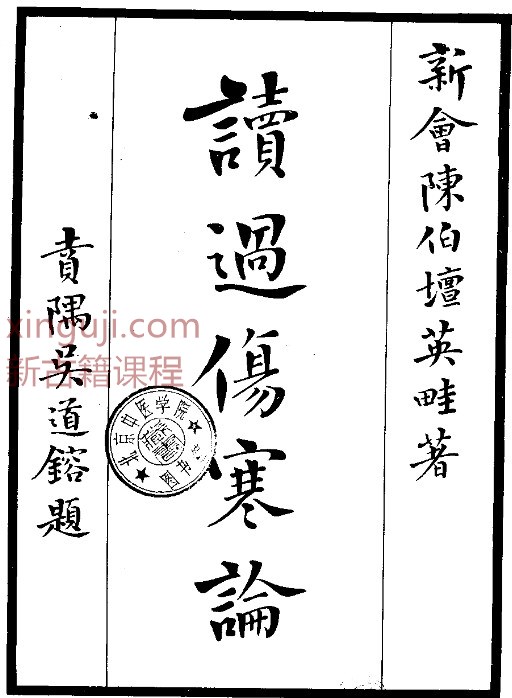 新會陳伯壇英畦著
讀過傷寒論
賁隅吴道鎔題
xinguji.com
新古籍课程
北京中医学院